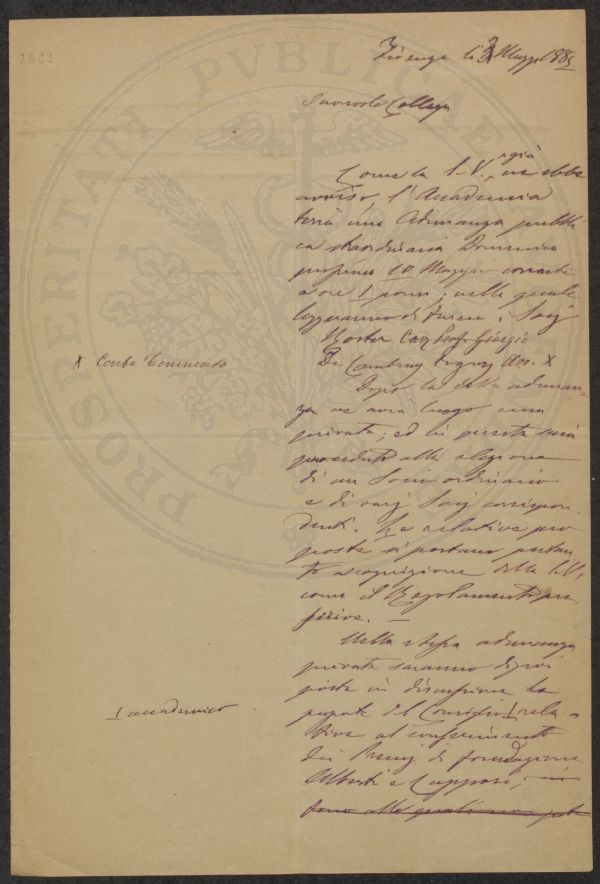 1062
PROSPERITATI PUBLICAE
Firenze li 3 Maggio 1885
Onorevole Collega
Come la S. V. già ne ebbe
avviso, l'Accademia
terrà una Adunanza pubbli
ca straordinaria Domenica
prossima 10 Maggio corrente
a ore 1 pom; nella quale
leggeranno di turno i Socj
Roster Cav Prof. Giorgio
X Conte Tommaso
De Cambray Digny Avv. X
Dopo la detta adunan
za ne avrà luogo una
privata, ed in questa sarà
proceduto alla elezione
di un Socio ordinario
e di varj Socj corrispon
denti. Le relative pro
poste si portano pertan
to a cognizione della S. V.
come il Regolamento pre
scrive. —
Nella stessa adunanza
privata saranno di poi
poste in discussione le
proposte del Consiglio rela
accademico
tive al conferimento
dei Premj di fondazione
Alberti e Capponi;
alle quali